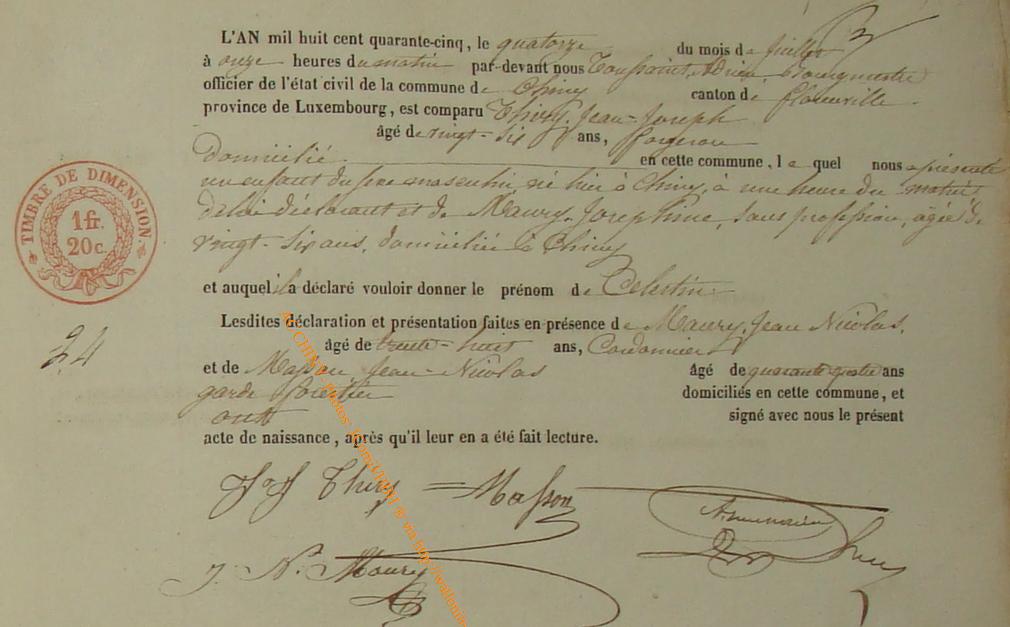 L'AN mil huit cent quarante-cinq, le quatorze du mois de juillet
à onze heures du matin par-devant nous Toussaint, Adrien, bourgmestre
officier de l'état civil de la commune de Chiny canton de florenville
province de Luxembourg, est comparu Thiry, Jean-Joseph
âgé de vingt-six ans, forgeron
domicilié en cette commune, le quel nous a présenté
un enfant du sexe masculin, né hier à Chiny, à une heure du matin
de lui déclarant et de Maury, Josephine, sans profession, âgée de
vingt-six ans, domiciliée à Chiny
et auquel il a déclaré vouloir donner le prénom de Celestin
Lesdites déclaration et présentation faites en présence de Maury, Jean Nicolas,
âgé de trente-huit ans, Cordonnier
et de Masson Jean-Nicolas âgé de quarante quatre ans
garde forestier domiciliés en cette commune, et
ont signé avec nous le présent
acte de naissance, après qu'il leur en a été fait lecture.
TIMBRE DE DIMENSION.
1 fr.
20 c.
24
J J Thiry Masson
J. N. Maury